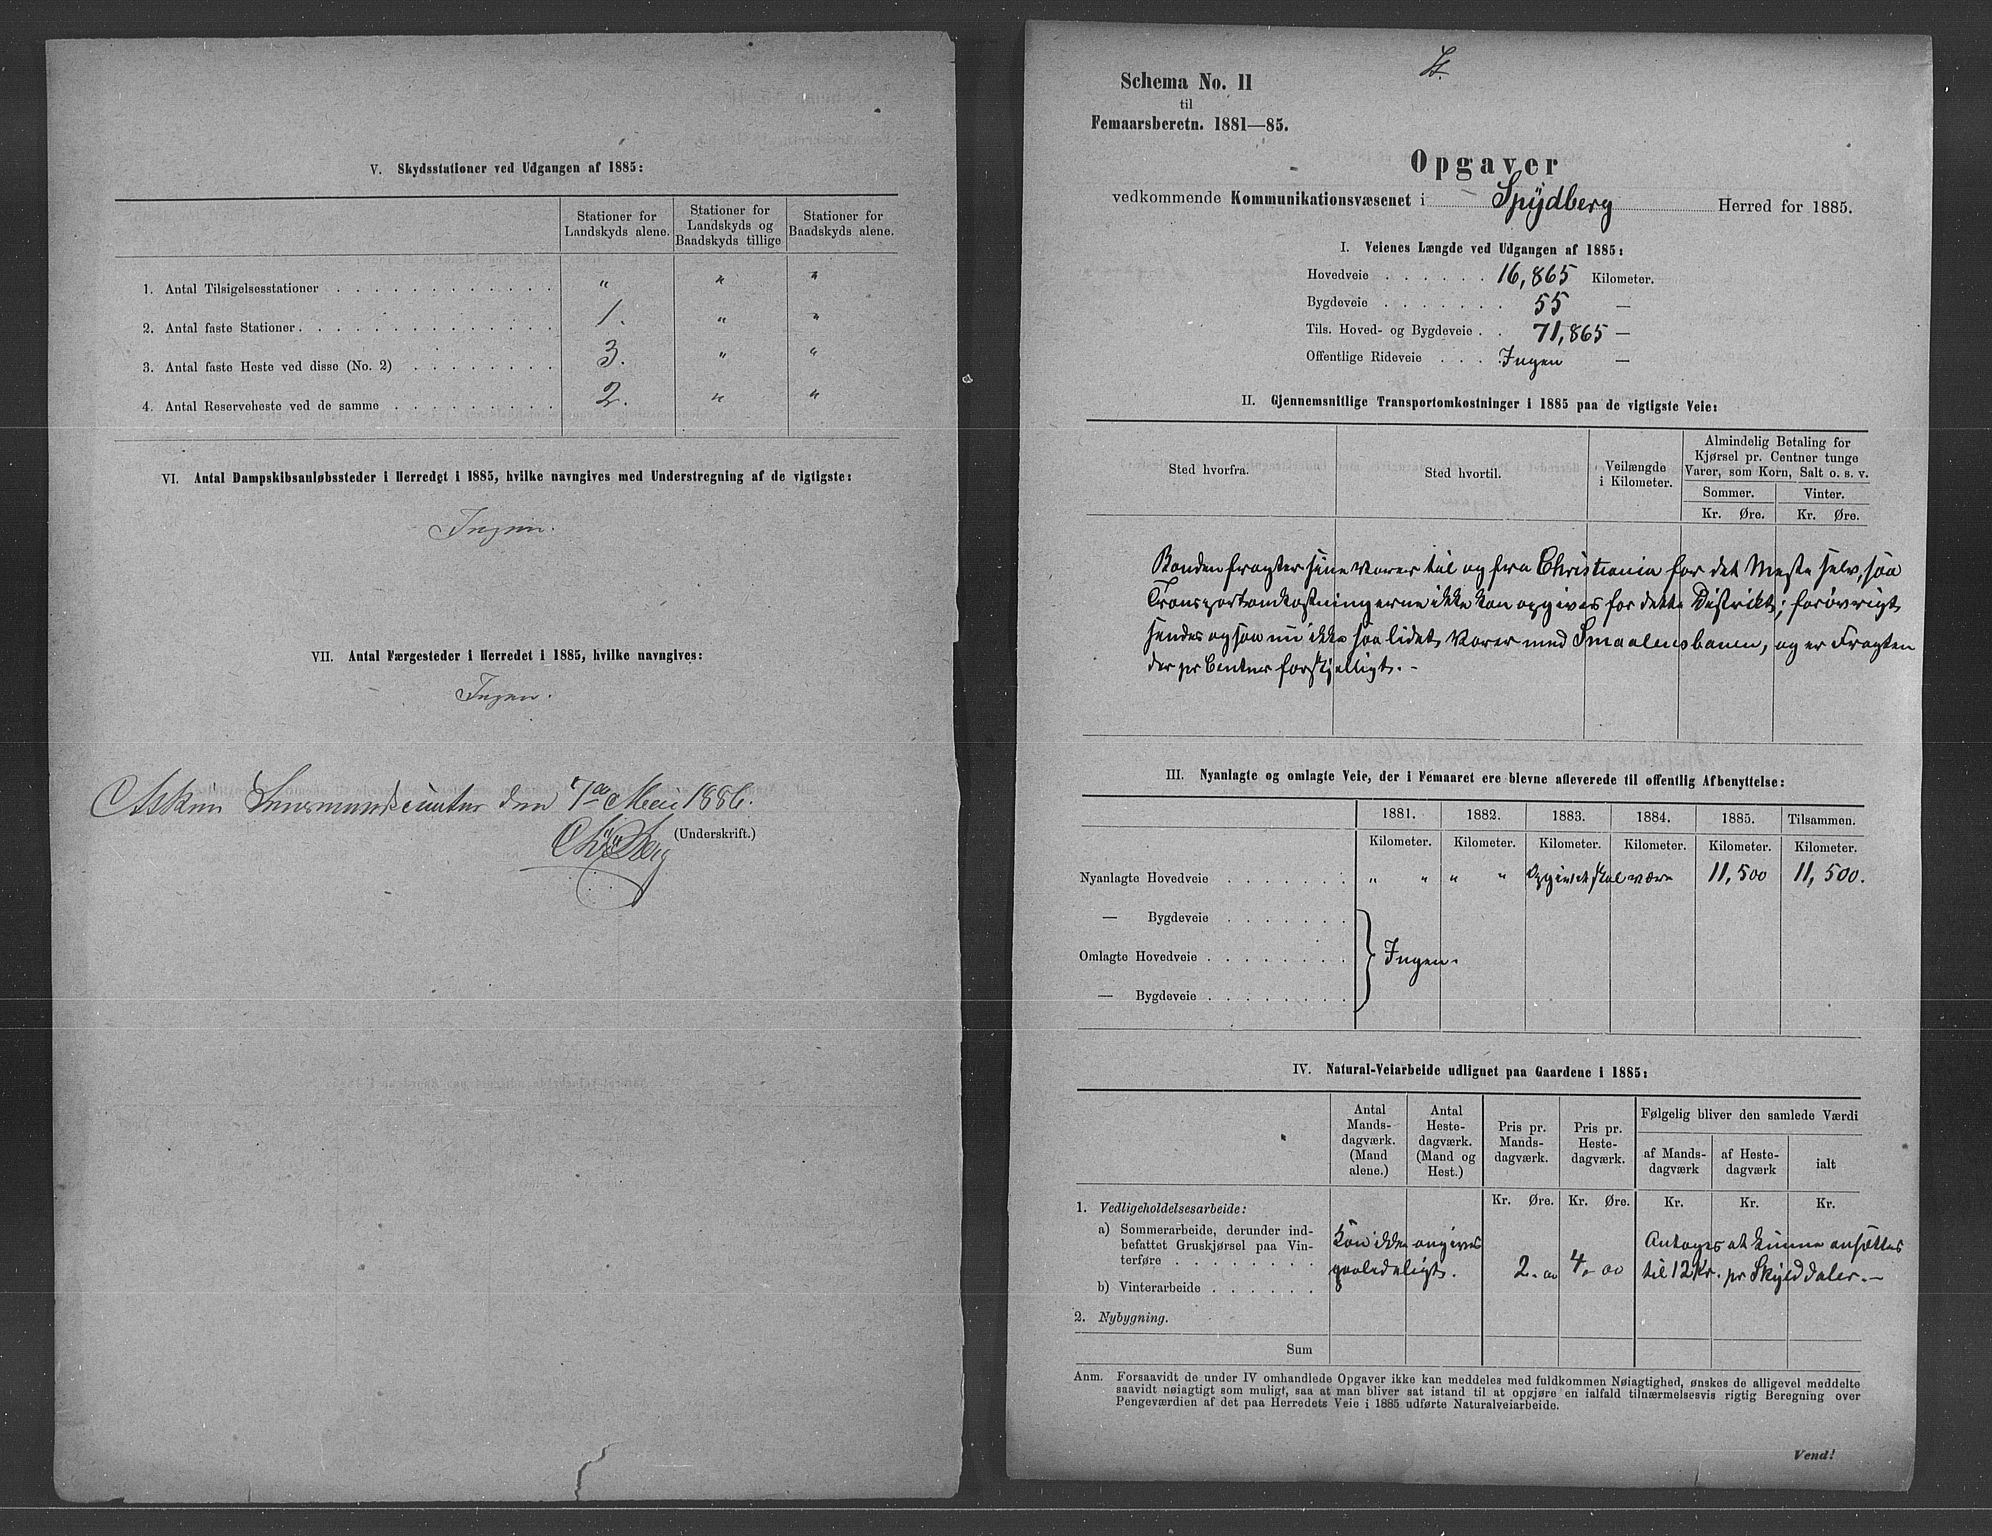 V. Skydsstationer ved Udgangen af 1885:
Stationer for Landskyds alene.
Stationer for Landskyds og Baadskyds tillige
Stationer for Baadskyds alene.
1. Antal Tilsigelsesstationer . . . „ „ „
2. Antal faste Stationer . . . 1. „ „
3. Antal faste Heste ved disse (No. 2) . . . 3. „ „
4. Antal Reserveheste ved de samme . . . 2. „ „
VI. Antal Dampskibsanløbssteder i Herredet i 1885, hvilke navngives med Understregning af de vigtigste:
Ingen.
VII. Antal Færgesteder i Herredet i 1885, hvilke navngives:
Ingen.
Askim Lensmandskontor den 7de Mai 1886.
(Underskrift.)
Schema No. 11
til
Femaarsberetn. 1881—85.
Opgaver
vedkommende Kommunikationsvæsenet i Spydberg Herred for 1885.
I. Veienes Længde ved Udgangen af 1885:
Hovedveie . . . 16,865 Kilometer.
Bygdeveie . . . 55 —
Tils. Hoved- og Bygdeveie . . 71,865 —
Offentlige Rideveie . . . Ingen —
II. Gjennemsnitlige Transportomkostninger i 1885 paa de vigtigste Veie:
Sted hvorfra.
Sted hvortil.
Veilængde i Kilometer.
Almindelig Betaling for
Kjørsel pr. Centner tunge
Varer, som Korn, Salt o. s. v.
Sommer. Vinter.
Kr. Øre. Kr. Øre.
Bonden fragter sine Varer til og fra Christiania for det Meste selv, saa
Transportomkostningerne ikke kan opgives for dette Distrikt; forøvrigt
sendes ogsaa nu ikke saa lidet Varer med Smaalensbanen, og er Fragten
der pr Centner forskjelligt. -
III. Nyanlagte og omlagte Veie, der i Femaaret ere blevne afleverede til offentlig Afbenyttelse:
1881. 1882. 1883. 1884. 1885. Tilsammen.
Kilometer. Kilometer. Kilometer. Kilometer. Kilometer. Kilometer.
Nyanlagte Hovedveie . . . „ „ „ „ Opgivet skal være 11,500 11,500.
— Bygdeveie . . .
Omlagte Hovedveie . . . Ingen.
— Bygdeveie . . .
IV. Natural-Veiarbeide udlignet paa Gaardene i 1885:
Antal Mandsdagværk. (Mand alene.)
Antal Hestedagværk. (Mand og Hest.)
Pris pr. Mandsdagværk.
Pris pr. Hestedagværk.
Følgelig bliver den samlede Værdi
af Mandsdagværk
af Hestedagværk
ialt
Kr. Øre. Kr. Øre. Kr. Kr. Kr.
1. Vedligeholdelsesarbeide:
a) Sommerarbeide, derunder ind-
befattet Gruskjørsel paa Vin-
terføre . . .
Kan ikke angives
paalideligt.
2. 00 4. 00
Antages at kunne ansættes
til 12 Kr. pr Skylddaler. -
b) Vinterarbeide . . .
2. Nybygning.
Sum
Anm. Forsaavidt de under IV omhandlede Opgaver ikke kan meddeles med fuldkommen Nøiagtighed, ønskes de alligevel meddelte
saavidt nøiagtigt som muligt, saa at man bliver sat istand til at opgjøre en ialfald tilnærmelsesvis rigtig Beregning over
Pengeværdien af det paa Herredets Veie i 1885 udførte Naturalveiarbeide.
Vend!